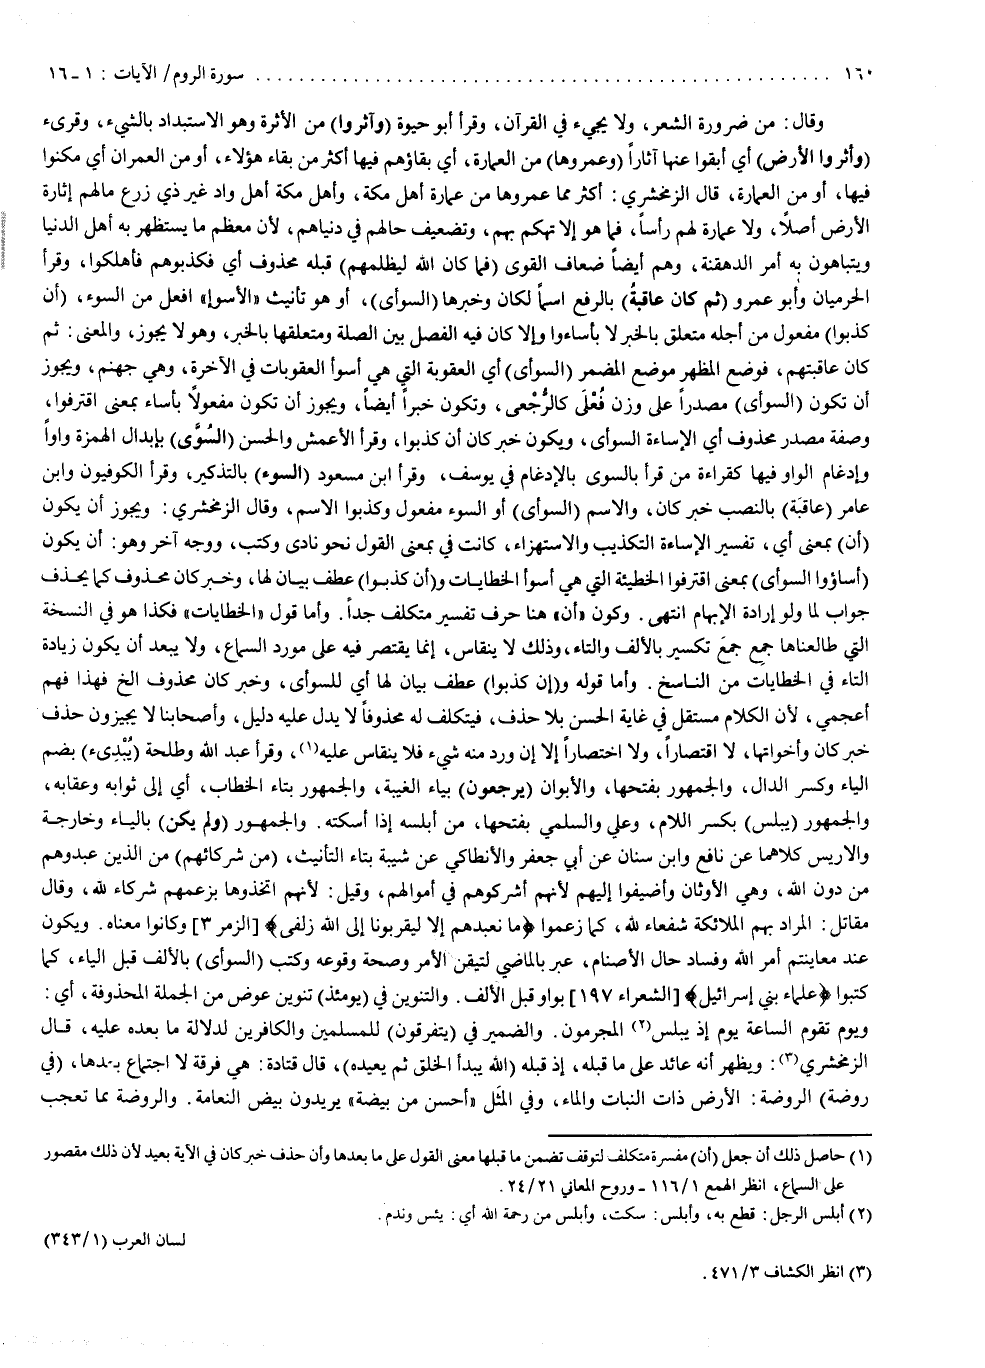 ١٦٠ ................................................ سورة الروم/ الآيات : ١ ـ ١٦
وقال: من ضرورة الشعر، ولا يجيء في القرآن، وقرأ أبو حيوة (وآثروا) من الأثرة وهو الاستبداد بالشيء، وقرىء
(وأثروا الأرض) أي أبقوا عنها آثاراً (وعمروها) من العمارة، أي بقاؤهم فيها أكثر من بقاء هؤلاء، أو من العمران أي مكنوا
فيها، أو من العمارة، قال الزمخشري: أكثر مما عمروها من عمارة أهل مكة، وأهل مكة أهل واد غير ذي زرع مالهم إثارة
الأرض أصلًا، ولا عمارة لهم رأساً، فما هو إلا تهكم بهم، وتضعيف حالهم في دنياهم، لأن معظم ما يستظهر به أهل الدنيا
ويتباهون به أمر الدهقنة، وهم أيضاً ضعاف القوى (فما كان الله ليظلمهم) قبله محذوف أي فكذبوهم فأهلكوا، وقرأ
الحرميان وأبو عمرو (ثم كان عاقبةُ) بالرفع اسماً لكان وخبرها (السوأى)، أو هو تأنيث «الأسوإ» افعل من السوء، (أن
كذبوا) مفعول من أجله متعلق بالخبر لا بأساءوا وإلا كان فيه الفصل بين الصلة ومتعلقها بالخبر، وهو لا يجوز، والمعنى: ثم
كان عاقبتهم، فوضع المظهر موضع المضمر (السوأى) أي العقوبة التي هي أسوأ العقوبات في الآخرة، وهي جهنم، ويجوز
أن تكون (السوأى) مصدراً على وزن فُعْلَى كالرُّجْعى، وتكون خبراً أيضاً، ويجوز أن تكون مفعولاً بأساء بمعنى اقترفوا،
وصفة مصدر محذوف أي الإساءة السوأى، ويكون خبر كان أن كذبوا، وقرأ الأعمش والحسن (السُوَّى) بإبدال الهمزة واواً
وإدغام الواو فيها كقراءة من قرأ بالسوى بالإدغام في يوسف، وقرأ ابن مسعود (السوء) بالتذكير، وقرأ الكوفيون وابن
عامر (عاقبَة) بالنصب خبر كان، والاسم (السوأى) أو السوء مفعول وكذبوا الاسم، وقال الزمخشري: ويجوز أن يكون
(أن) بمعنى أي، تفسير الإساءة التكذيب والاستهزاء، كانت في بمعنى القول نحو نادى وكتب، ووجه آخر وهو: أن يكون
(أساؤوا السوأى) بمعنى اقترفوا الخطيئة التي هي أسوأ الخطايات و(أن كذبوا) عطف بيان لها، وخبر كان محذوف كما يحذف
جواب لما ولو إرادة الإبهام انتهى. وكون «أن» هنا حرف تفسير متكلف جداً. وأما قول «الخطايات» فكذا هو في النسخة
التي طالعناها جمع جمعَ تكسير بالألف والتاء، وذلك لا ينقاس، إنما يقتصر فيه على مورد السماع، ولا يبعد أن يكون زيادة
التاء في الخطايات من الناسخ. وأما قوله و(إن كذبوا) عطف بيان لها أي للسوأى، وخبر كان محذوف الخ فهذا فهم
أعجمي، لأن الكلام مستقل في غاية الحسن بلا حذف، فيتكلف له محذوفاً لا يدل عليه دليل، وأصحابنا لا يجيزون حذف
خبر كان وأخواتها، لا اقتصاراً، ولا اختصاراً إلا إن ورد منه شيء فلا ينقاس عليه(١)، وقرأ عبد الله وطلحة (يُبْدِىء) بضم
الياء وكسر الدال، والجمهور بفتحها، والأبوان (يرجعون) بياء الغيبة، والجمهور بتاء الخطاب، أي إلى ثوابه وعقابه،
والجمهور (يبلس) بكسر اللام، وعلي والسلمي بفتحها، من أبلسه إذا أسكته. والجمهور (ولم يكن) بالياء وخارجة
والاريس كلاهما عن نافع وابن سنان عن أبي جعفر والأنطاكي عن شيبة بتاء التأنيث، (من شركائهم) من الذين عبدوهم
من دون الله، وهي الأوثان وأضيفوا إليهم لأنهم أشركوهم في أموالهم، وقيل: لأنهم اتخذوها بزعمهم شركاء لله، وقال
مقاتل: المراد بهم الملائكة شفعاء لله، كما زعموا ﴿ما نعبدهم إلا ليقربونا إلى الله زلفى﴾ [الزمر ٣] وكانوا معناه. ويكون
عند معاينتم أمر الله وفساد حال الأصنام، عبر بالماضي لتيقن الأمر وصحة وقوعه وكتب (السوأى) بالألف قبل الياء، كما
كتبوا ﴿علماء بني إسرائيل﴾ [الشعراء ١٩٧] بواو قبل الألف. والتنوين في (يومئذ) تنوين عوض من الجملة المحذوفة، أي:
ويوم تقوم الساعة يوم إذ يبلس(٢) المجرمون. والضمير في (يتفرقون) للمسلمين والكافرين لدلالة ما بعده عليه، قال
الزمخشري(٣): ويظهر أنه عائد على ما قبله، إذ قبله (الله يبدأ الخلق ثم يعيده)، قال قتادة: هي فرقة لا اجتماع بعدها، (في
روضة) الروضة: الأرض ذات النبات والماء، وفي المثَل «أحسن من بيضة» يريدون بيض النعامة. والروضة مما تعجب
(١) حاصل ذلك أن جعل (أن) مفسرة متكلف لتوقف تضمن ما قبلها معنى القول على ما بعدها وأن حذف خبر كان في الآية بعيد لأن ذلك مقصور
على السماع، انظر الهمع ١١٦/١ ـ وروح المعاني ٢٤/٢١.
(٢) أبلس الرجل: قطع به، وأبلس: سكت، وأبلس من رحمة الله أي: يئس وندم.
لسان العرب (٣٤٣/١)
(٣) انظر الكشاف ٤٧١/٣.